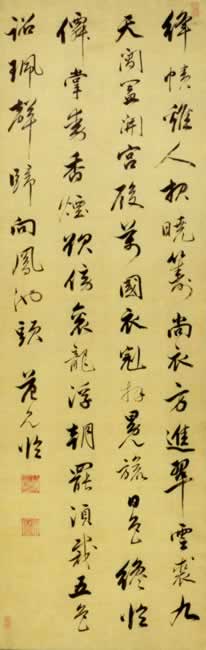 絳幘雞人報曉籌尚衣方進翠雲裘九
天閶闔開宮殿萬國衣冠拜冕旒日色纔臨
仙掌動香煙欲傍袞龍浮朝罷須裁五色
詔珮聲歸向鳳池頭 范允臨